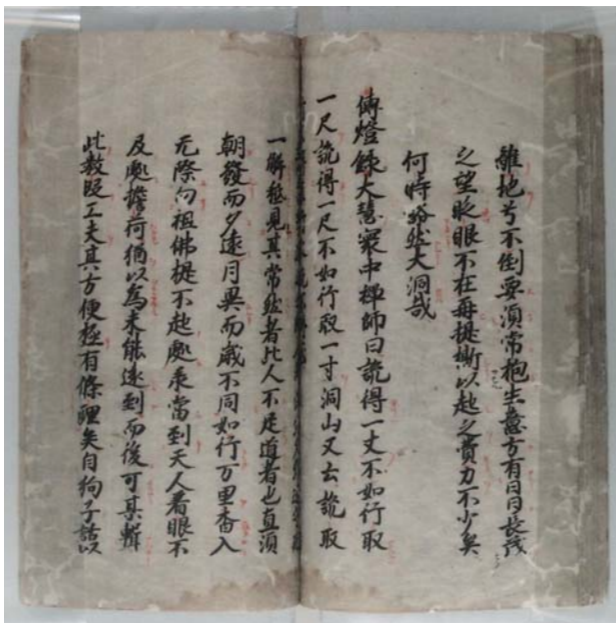 離地兮不倒要須常抱生意方有日日長茂
之望眨眼不在再提撕以起之費力不少矣
何時豁然大洞哉
傳燈錄大慧寰中禪師曰説得一丈不如行取
一尺説得一尺不如行取一寸洞山又云説取
一解毬見其常然者此人不足道者也直須
朝發而夕遠月異而歲不同如行万里杳入
无際向祖佛提不起處承當到天人看眼不
及處擔荷猶以為未能遠到而後可其輯
此教眨工夫其方便極有條理矣自狗子話以